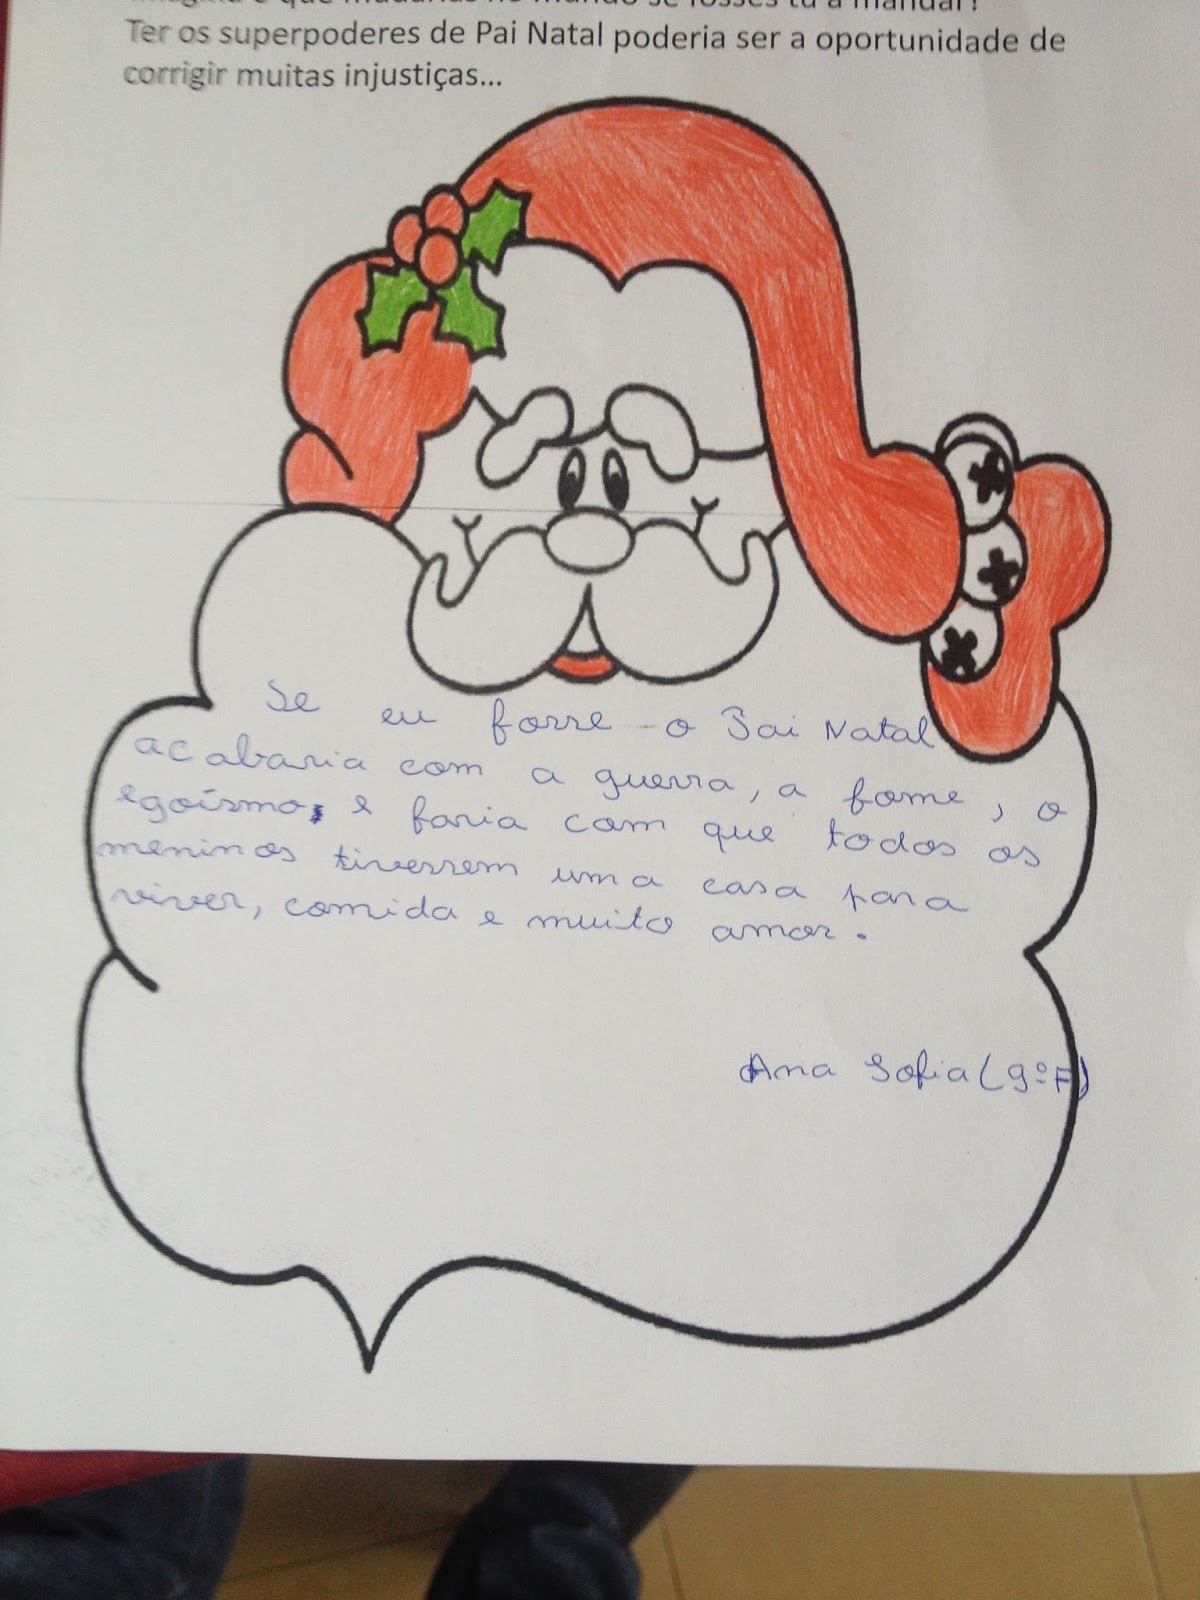 imagina o que mudarias no mundo se fosses tu a mandar!
Ter os superpoderes de Pai Natal poderia ser a oportunidade de
corrigir muitas injustiças...
Se eu fosse o Pai Natal
acabaria com a guerra, a fome, o
egoísmo, e faria com que todos os
meninos tivessem uma casa para
viver, comida e muito amor.
Ana Sofia (9º F)